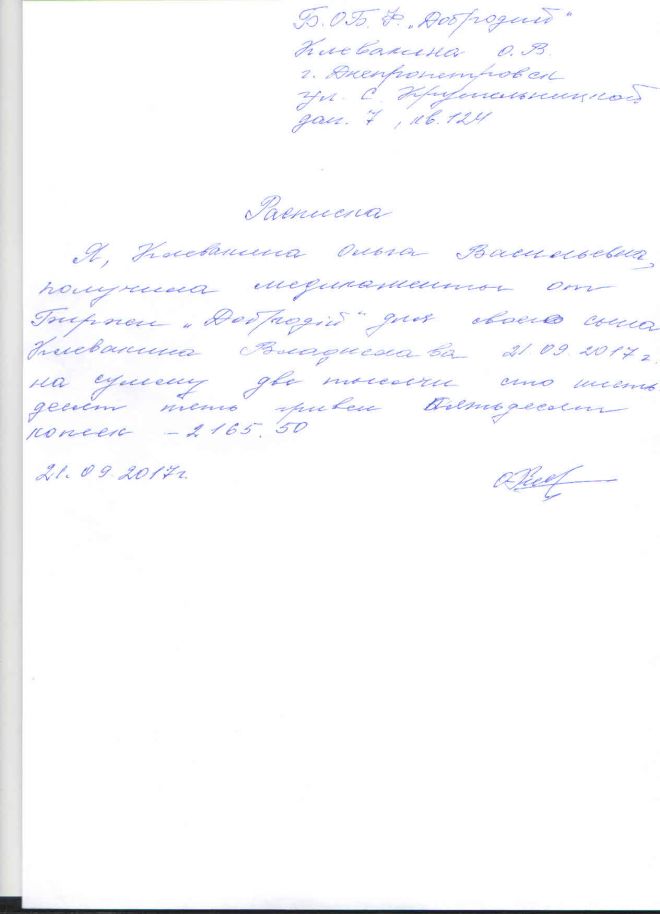 Б.О.Б.Ф. „Добродий"
Клевакина О.В.
г. Днепропетровск
ул. С. Крушельницкой
дом. 7, кв. 124
Расписка
Я, Клевакина Ольга Васильевна,
получила медикаменты от
Биржи „Добродій" для своего сына
Клевакина Владислава 21.09.2017г.
на сумму две тысячи сто шесть
десят пять гривен пятьдесят
копеек – 2165.50
21.09.2017г.